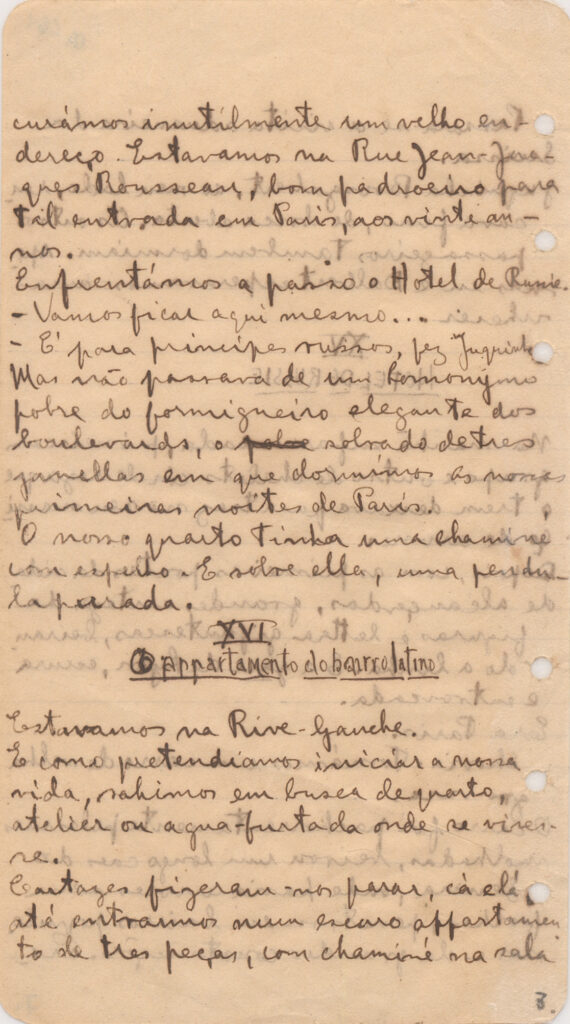 curámos inutilmente um velho en-
dereço. Estavamos na Rue Jean-Jac-
ques Rousseau, bom padroeiro para
tal entrada em Paris, aos vinte an-
nos.
Enfrentámos a passo o Hotel de Russie.
- Vamos ficar aqui mesmo...
- É para principes russos, fez Juquinha
Mas não passava de um homonymo
pobre do formigueiro elegante dos
boulevards, o sobrado de tres
janellas em que dormimos as nossas
primeiras noites de Paris.
O nosso quarto tinha uma chaminé
com espelho. E sobre ella, uma pendu-
la parada.
XVI
O appartamento do bairro latino
Estavamos na Rive-Gauche.
E como pretendiamos iniciar a nossa
vida, sahimos em busca de quarto,
atelier ou agua-furtada onde se vives-
se.
Cartazes fizeram-nos parar, cá e lá,
até entrarmos num escuro appartamen
to de tres peças, com chaminé na sala
3.